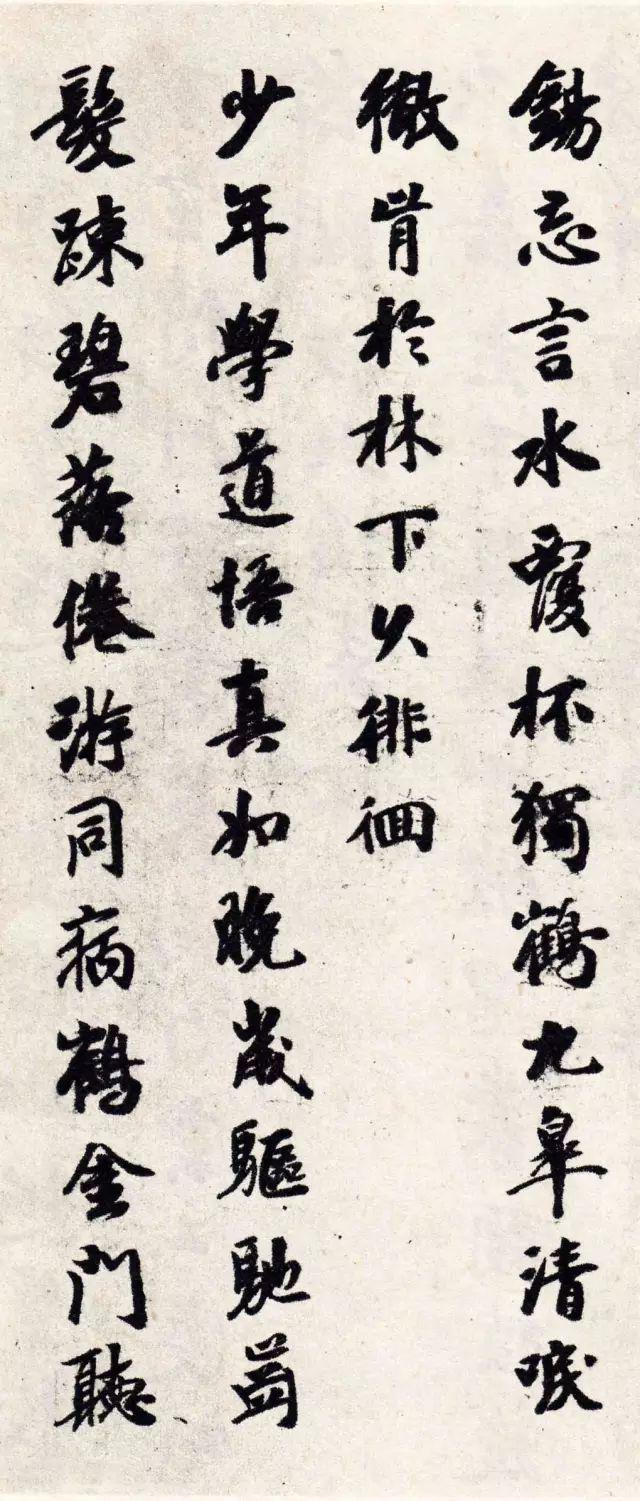 錫忘言水覆杯獨鶴九皋清唳
徹肯於林下久徘徊
少年學道悟真如晚歲驅馳齒
髮疎碧落倦游同病鶴金門聽